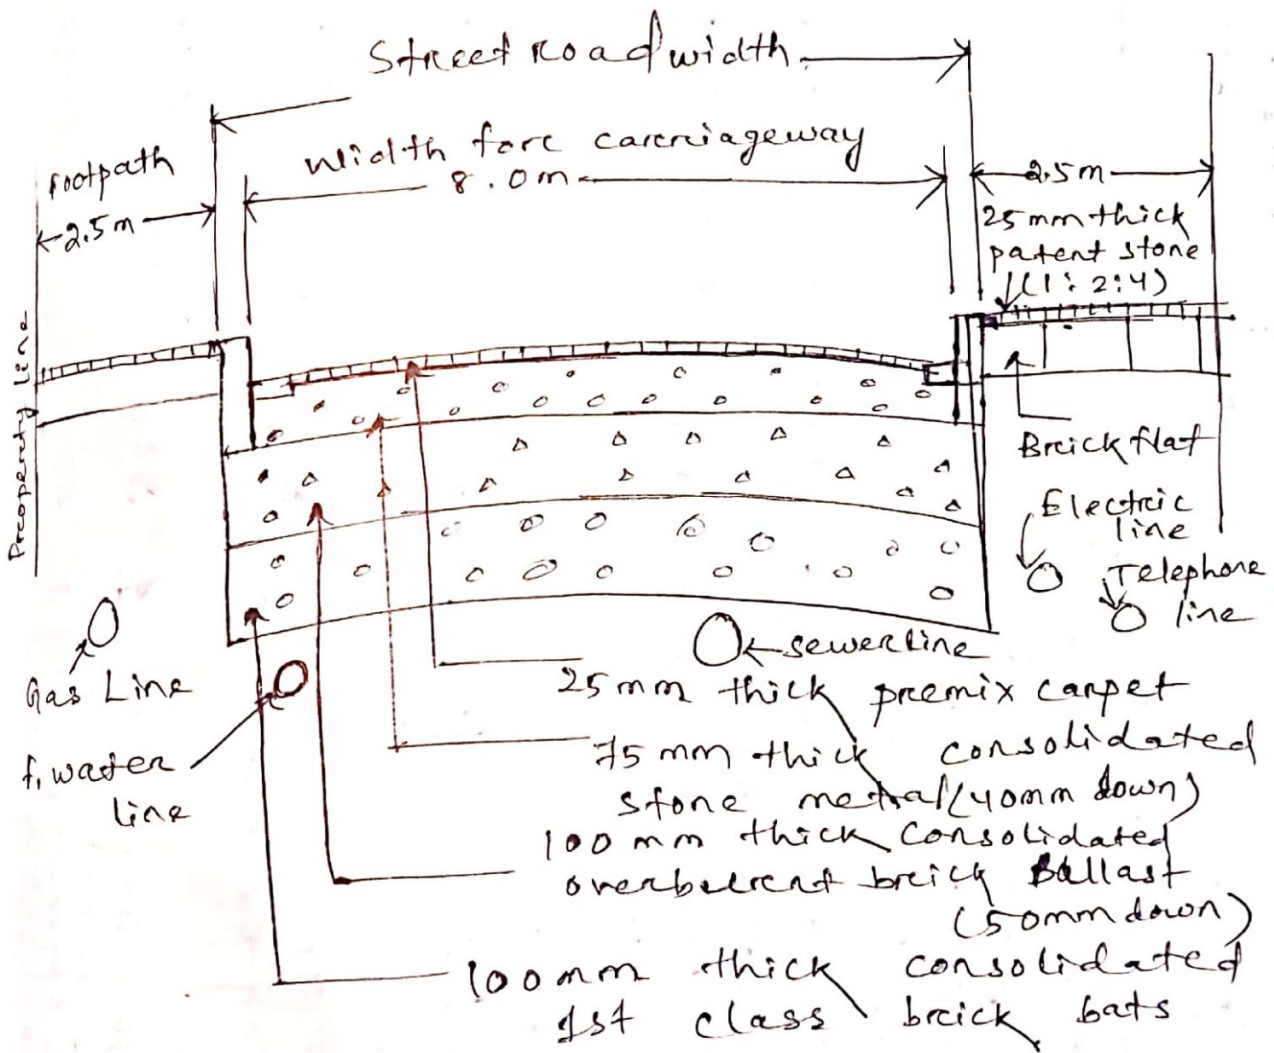 Street road width
footpath
Width for carriageway
8.0m
2.5m
2.5m
25mm thick
patent stone
(1:2:4)
Property line
Brick flat
Electric
line
Telephone
line
Gas Line
sewer line
f. water
line
25mm thick premix carpet
75mm thick consolidated
stone metal (40mm down)
100mm thick Consolidated
overburent brick Ballast
(50mm down)
100mm thick consolidated
1st class brick bats